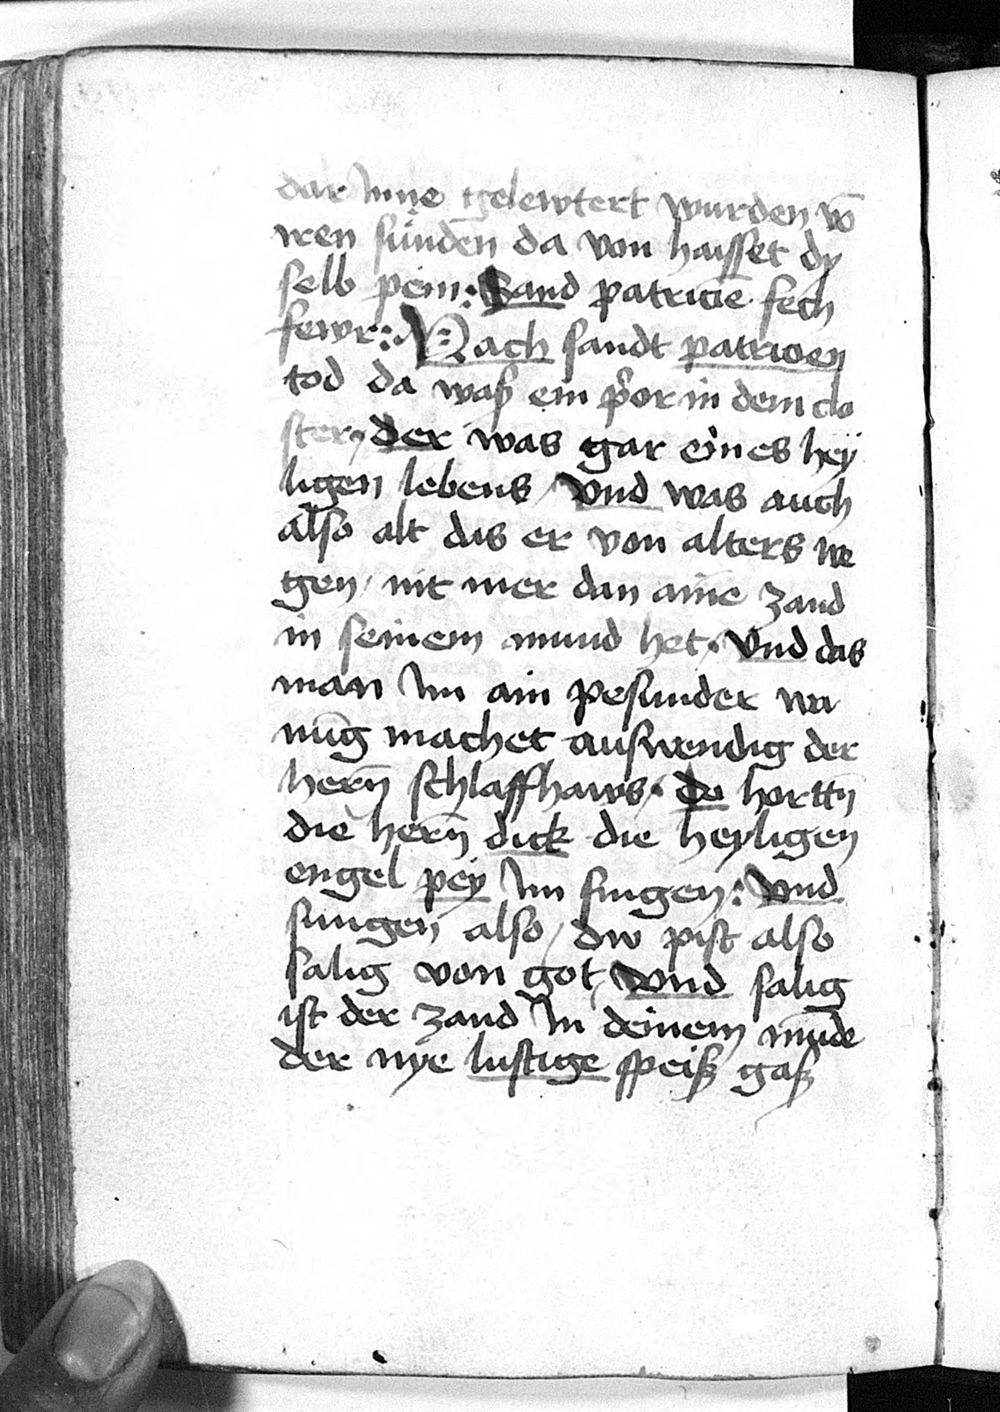 dar Inne gelewtert wurden vō
iren sünden da von haisset dy
selb pein : Sand patricië fech
fewr : Nach sandt patricen
tod da waß ein p̄or in dem clo
ster / der was gar eines hey
ligen lebens / vnd was auch
also alt das er von alters we
gen / nit mer dan aine zand
in seinem mund het / Vnd das
man Im ain pesunder wa
nūg machet auswendig der
herñ schlaffhaws / do hortñ
die herñ dick die heyligen
engel pey Im singen : Vnd
sungen also / dw pist also
salig von got / Vnd salig
ist der zand In deinem mūde
der nye lustige speiß gaß